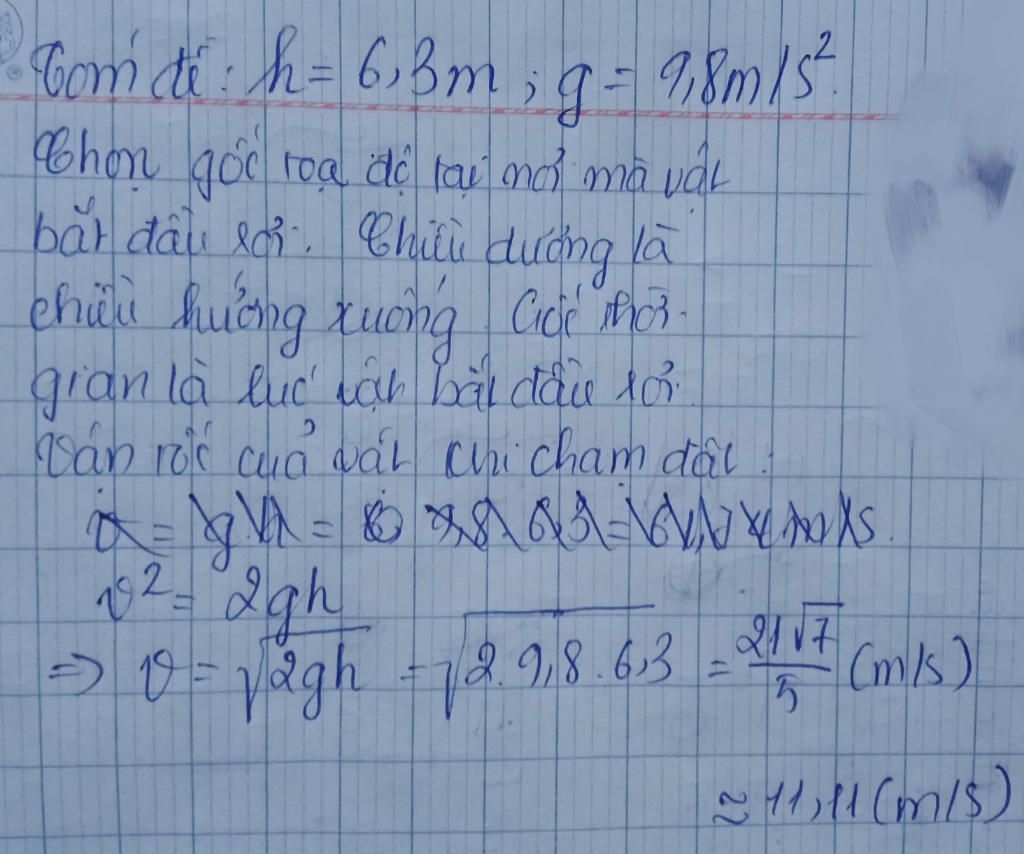 Tóm đề: h = 6,3m ; g = 9,8m/s².
Chọn gốc toạ độ tại nơi mà vật
bắt đầu rơi. Chiều dương là
chiều hướng xuống. Gốc thời
gian là lúc vật bắt đầu rơi.
Vận tốc của vật khi chạm đất:
v² = 2gh
=> v = √2gh = √2.9,8.6,3 = 21√7/5 (m/s)
≈ 11,11 (m/s)